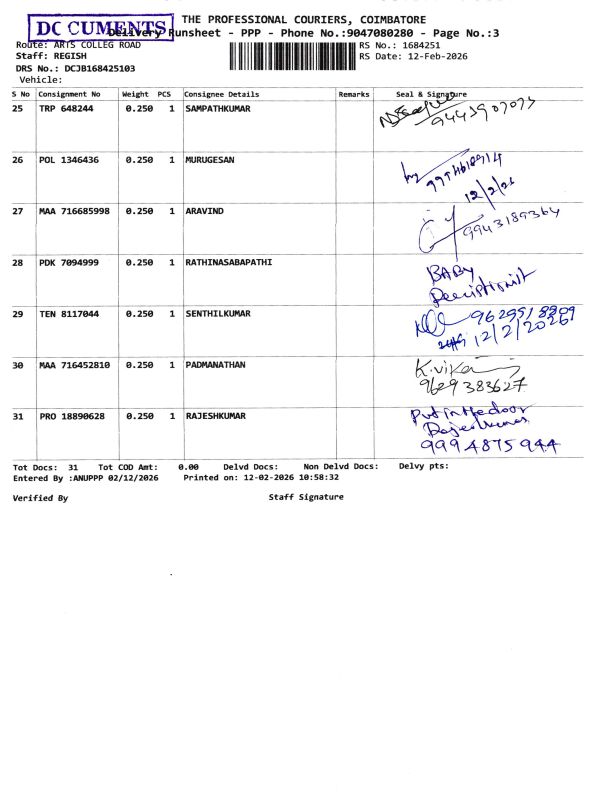 DC CUMENTS
THE PROFESSIONAL COURIERS, COIMBATORE
Delivery Runsheet - PPP - Phone No.:9047080280 - Page No.:3
Route: ARTS COLLEG ROAD
Staff: REGISH
DRS No.: DCJB168425103
Vehicle:
RS No.: 1684251
RS Date: 12-Feb-2026
S No Consignment No Weight PCS Consignee Details Remarks Seal & Signature
25 TRP 648244 0.250 1 SAMPATHKUMAR 9443907073
26 POL 1346436 0.250 1 MURUGESAN
12/2/26
27 MAA 716685998 0.250 1 ARAVIND 9943189364
28 PDK 7094999 0.250 1 RATHINASABAPATHI BABY
29 TEN 8117044 0.250 1 SENTHILKUMAR
12/2/2026
30 MAA 716452810 0.250 1 PADMANATHAN
9629383627
31 PRO 18890628 0.250 1 RAJESHKUMAR Put in the door
Rajeshkumar
9994875944
Tot Docs: 31 Tot COD Amt: 0.00 Delvd Docs: Non Delvd Docs: Delvy pts:
Entered By :ANUPPP 02/12/2026 Printed on: 12-02-2026 10:58:32
Verified By Staff Signature